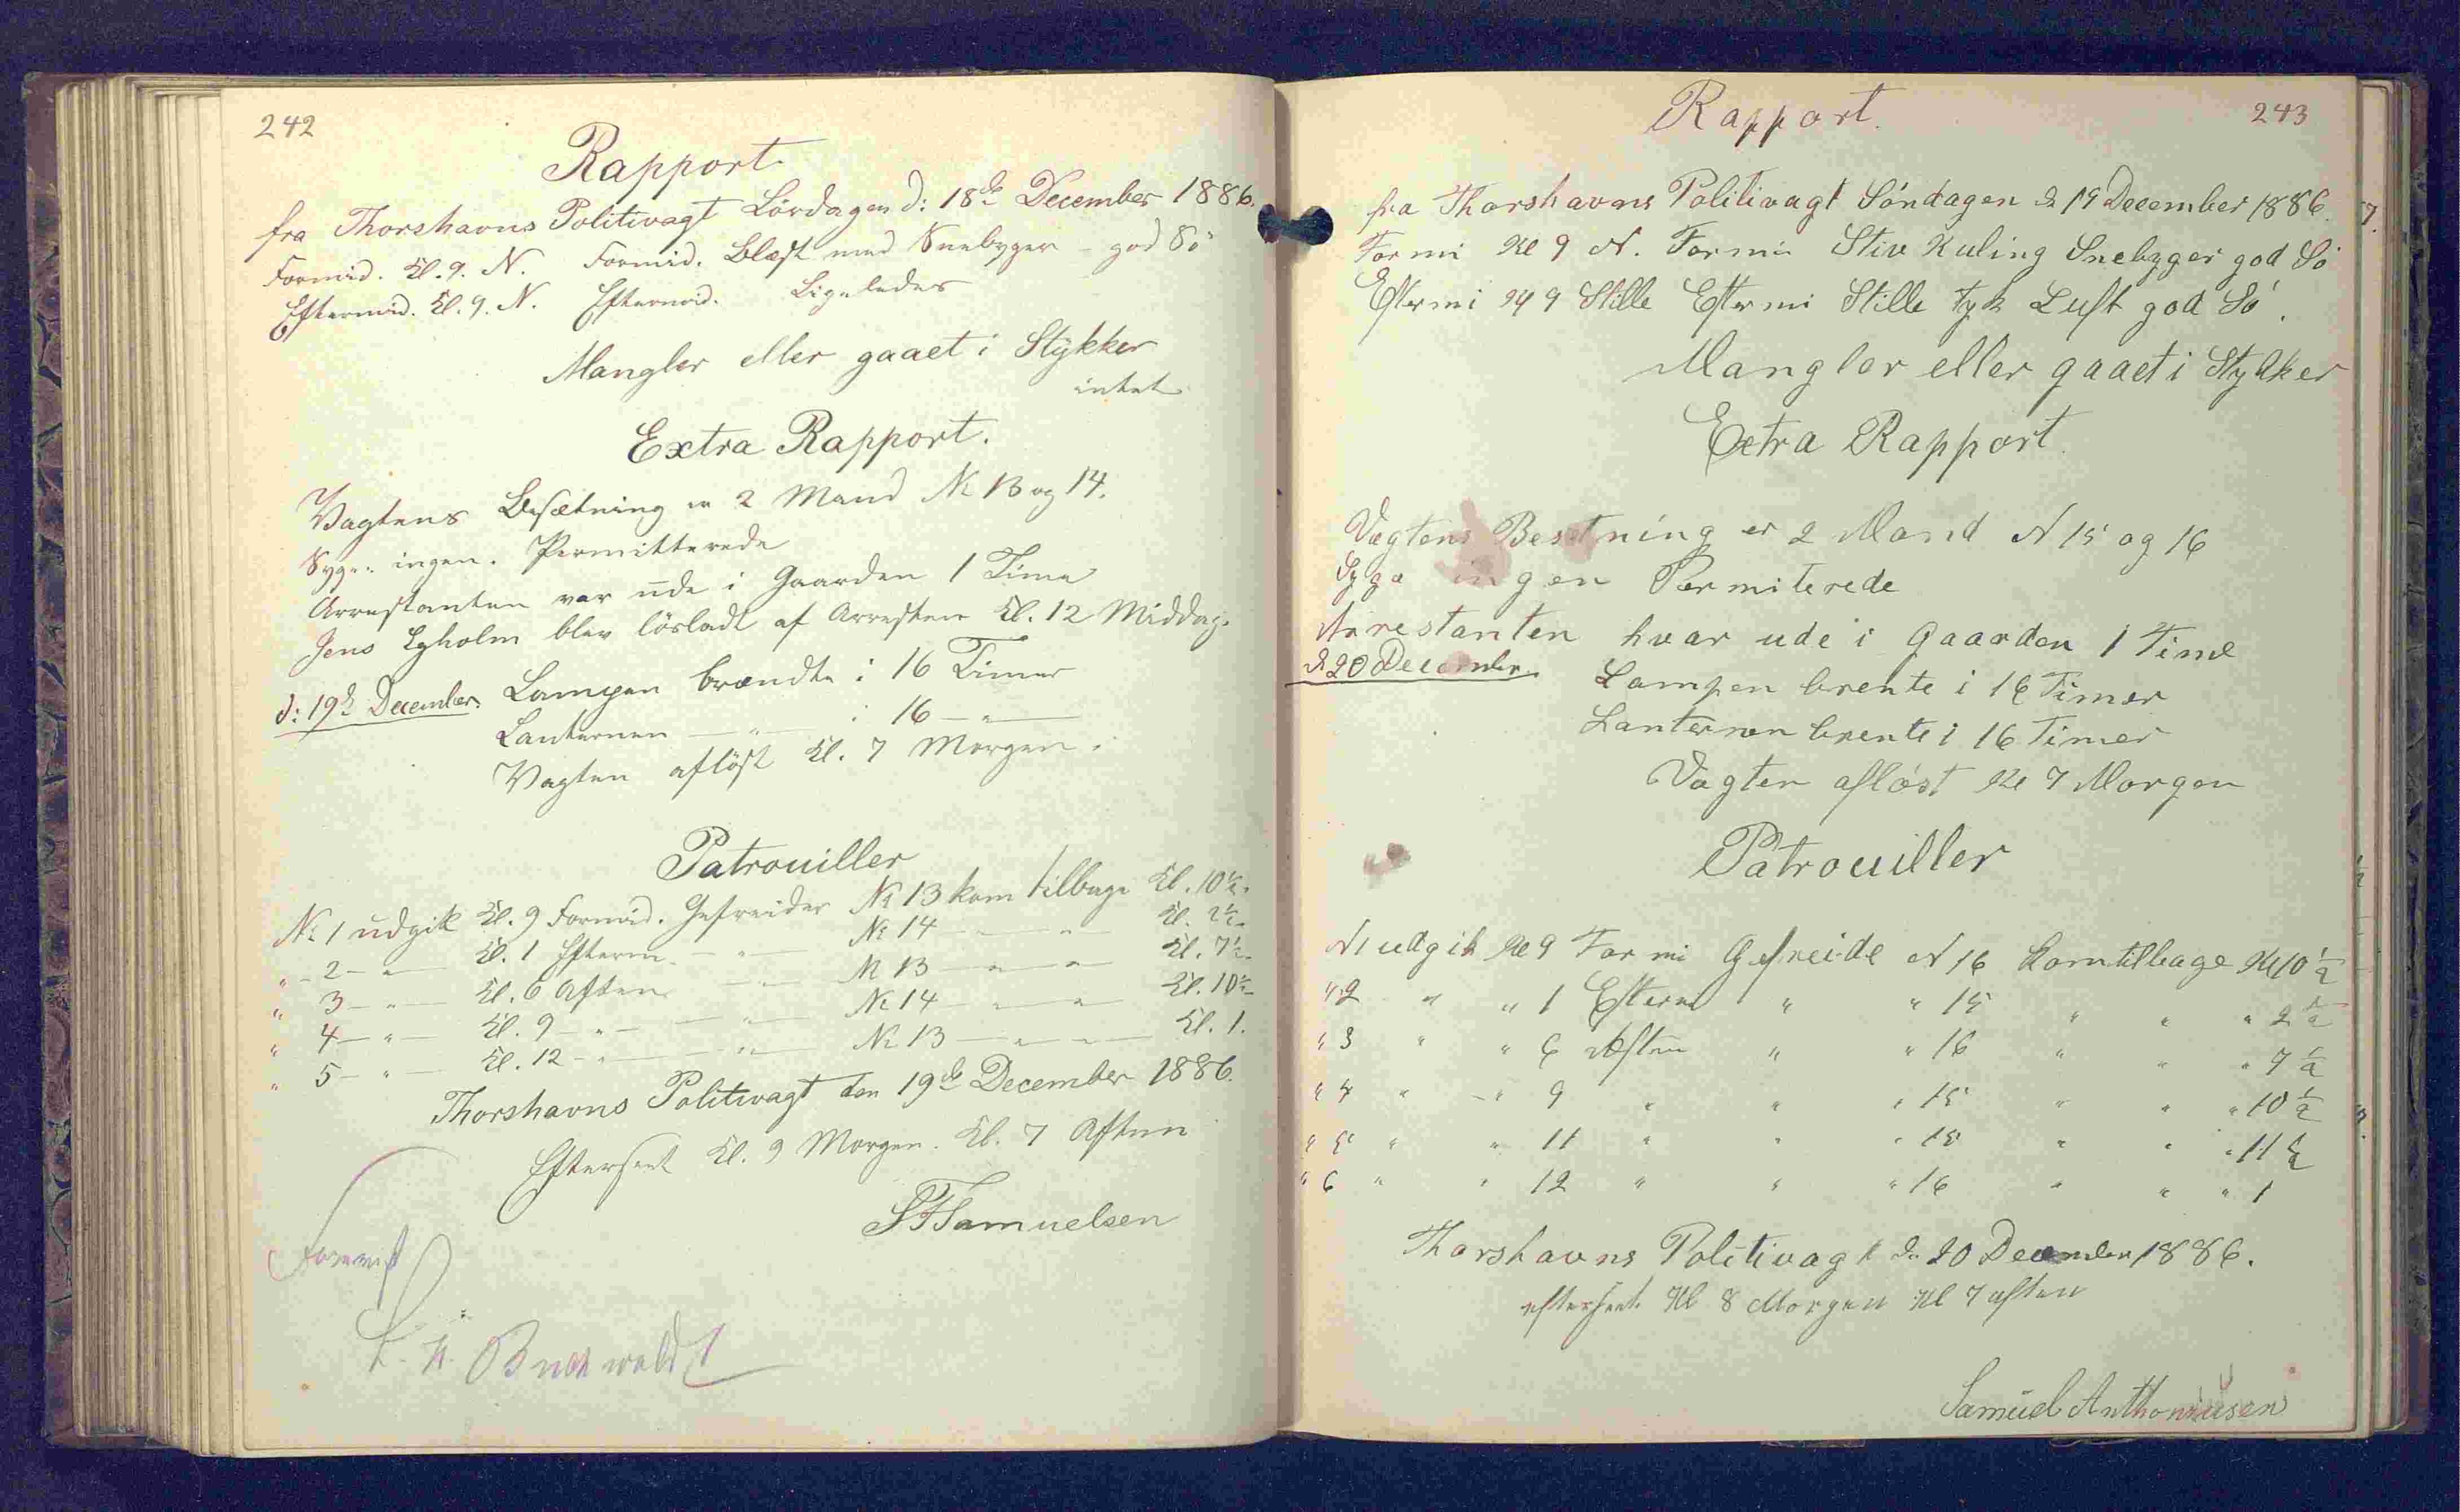 242
Rapport
fra Thorshavns Politivagt Lördagen d: 18de December 1886.
Formid. Kl. 9. N. Formid. Blæst med Sneebyger - god Sö
Eftermid. Kl. 9. N. Eftermid. Ligeledes
Mangler eller gaaet i Stykker
intet
Extra Rapport.
Vagtens Besætning er 2 Mand No 13 og 14.
Syge: ingen. Permitterede
Arrestanten var ude i Gaarden 1 Time
Jens Lyholm blev lösladt af Arresten Kl. 12 Middag.
d: 19de December. Lampen brændte i 16 Timer
Lanternen — " — i 16 — " —
Vagten aflöst Kl. 7 Morgen.
Patrouiller
No 1 udgik Kl. 9 Formid. Gefreider No 13 kom tilbage Kl. 10½.
" - 2 - " — Kl. 1 Efterm. — " — No 14 — " — " — Kl. 2½.
" 3 - " — Kl. 6 Aften — " — No 13 — " — " — Kl. 7½.
" 4 - " — Kl. 9 - " — — " — No 14 — " — " — Kl. 10½
" 5 - " — Kl. 12 - " — — " — No 13 — " — " — Kl. 1.
Thorshavns Politivagt den 19de December 1886.
Efterseet Kl. 9 Morgen. Kl. 7 Aften
Samuelsen
Forevist
Buchwaldt
Rapport.
243
fra Thorshavns Politivagt Söndagen d 19 December 1886.
Formi Kl 9 N. Formi Stiv Kuling Snebyger god Sö
Eftermi Kl 9 Stille Eftermi Stille tyk Luft god Sö.
Mangler eller gaaet i Stykker
Extra Rapport.
Vagtens Besetning er 2 Mand N 15 og 16
Syge ingen Permiterede
Arrestanten hvar ude i Gaarden 1 Time
d 20 December. Lampen brente i 16 Timer
Lanternen brente i 16 Timer
Vagten aflöst Kl 7 Morgen
Patrouiller
N 1 udgik Kl 9 Formi Gefreide N 16 Kom tilbage Kl 10½
" 2 " " 1 Efterm " " 15 " " " 2½
" 3 " " 6 Aften " " 16 " " " 7½
" 4 " " 9 " " " 15 " " " 10½
" 5 " " 11 " " " 15 " " " 11½
" 6 " " 12 " " " 16 " " " 1
Thorshavns Politivagt d. 20 December 1886.
efterseet Kl 8 Morgen Kl 7 aften
Samuel Anthoniusen